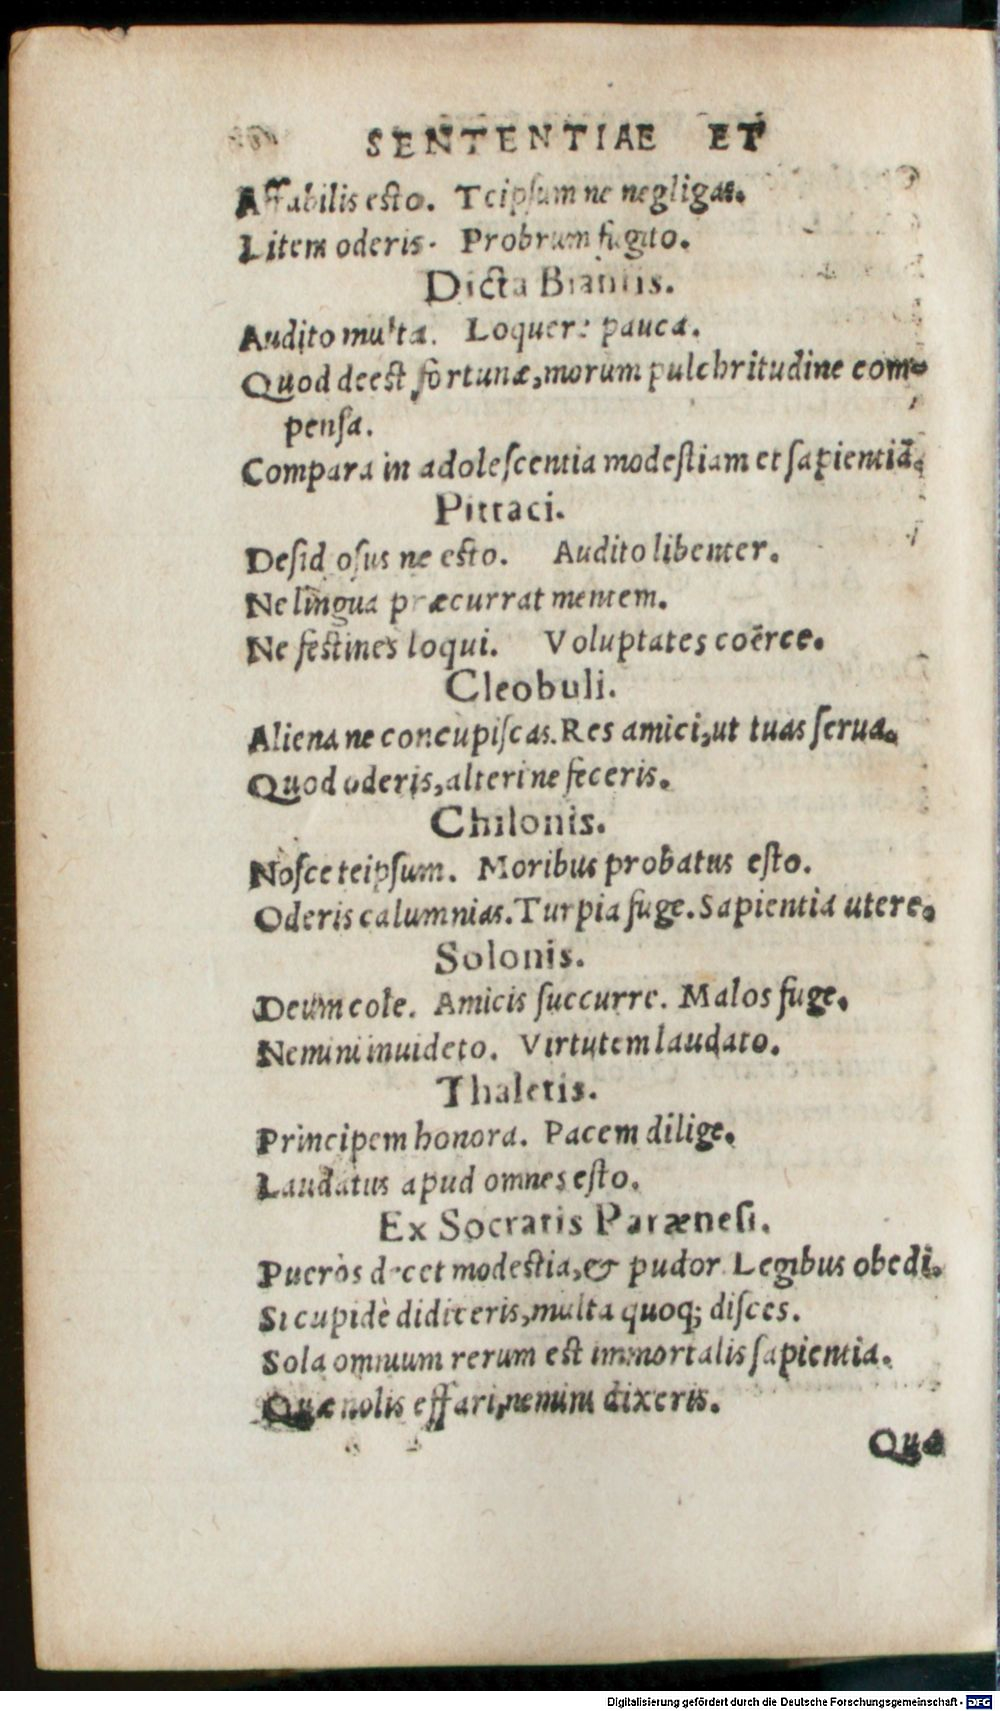 SENTENTIAE ET
Affabilis esto. Teipsum ne negligas.
Litem oderis. Probrum fugito.
Dicta Biantis.
Audito multa. Loquere pauca.
Quod deest fortunæ, morum pulchritudine com-
pensa.
Compara in adolescentia modestiam et sapientiā.
Pittaci.
Desidiosus ne esto. Audito libenter.
Ne lingua præcurrat mentem.
Ne festines loqui. Voluptates coërce.
Cleobuli.
Aliena ne concupiscas. Res amici, ut tuas serua.
Quod oderis, alteri ne feceris.
Chilonis.
Nosce teipsum. Moribus probatus esto.
Oderis calumnias. Turpia fuge. Sapientia utere.
Solonis.
Deum cole. Amicis succurre. Malos fuge.
Nemini inuideto. Virtutem laudato.
Thaletis.
Principem honora. Pacem dilige.
Laudatus apud omnes esto.
Ex Socratis Parænesi.
Pueros decet modestia, & pudor. Legibus obedi.
Si cupidè didiceris, multa quoq; disces.
Sola omnium rerum est immortalis sapientia.
Quæ nolis effari, nemini dixeris.
Quæ
Digitalisierung gefördert durch die Deutsche Forschungsgemeinschaft - DFG